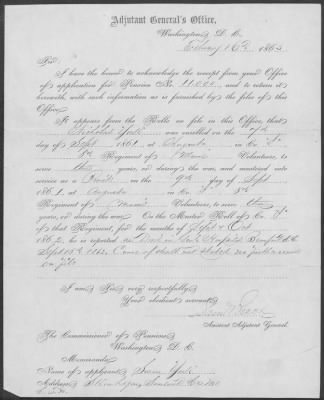 Adjutant General's Office,
Washington, D. C.
February 16th 1863
Sir:
I have the honor to acknowledge the receipt from your Office
of application for Pension No. and to return it
herewith, with such information as is furnished by the files of this
Office.
It appears from the Rolls on file in this Office, that
was enrolled on the 7th
day of Sept 1861, at Augusta in Co.
8th Regiment of Maine Volunteers, to
serve three years, or during the war, and mustered into
service as a Private on the 7th day of Sept
1861, at Augusta in Co. 8th
Regiment of Maine Volunteers, to serve three
years, or during the war. On the Muster Roll of Co.
of that Regiment, for the months of Sept & Oct
1862, he is reported Died in
Sept 1862. Cause of death not stated no
on file
I am, Sir, very respectfully,
Your obedient servant,
Assistant Adjutant General.
The Commissioner of Pensions,
Washington, D. C.
Memoranda:
Name of applicant,
Address,